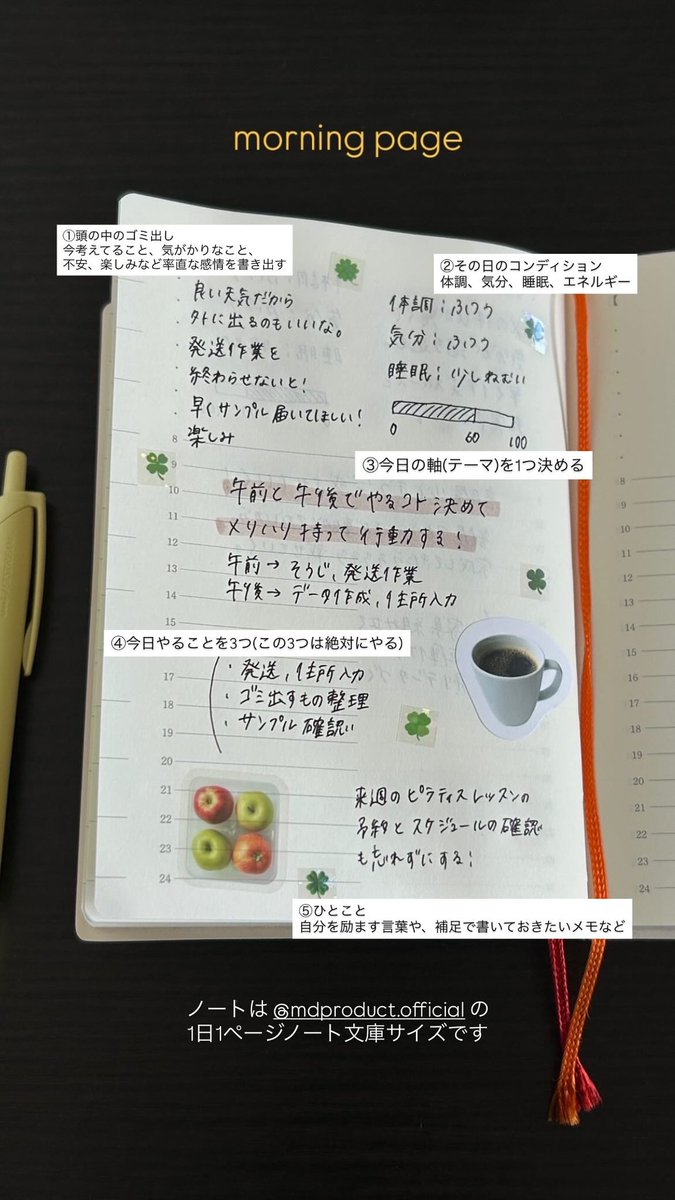 morning page
①頭の中のゴミ出し
今考えてること、気がかりなこと、
不安、楽しみなど率直な感情を書き出す
良い天気だから
外に出るのもいいな。
発送作業を
終わらせないと!
早くサンプル届いてほしい!
楽しみ
②その日のコンディション
体調、気分、睡眠、エネルギー
体調:ふつう
気分:ふつう
睡眠:少しねむい
0 60 100
③今日の軸(テーマ)を1つ決める
午前と午後でやるコト決めて
メリハリ持って行動する!
午前→そうじ、発送作業
午後→データ作成、住所入力
④今日やることを3つ(この3つは絶対にやる)
・発送、住所入力
・ゴミ出すもの整理
・サンプル確認
来週のピラティスレッスンの
予約とスケジュールの確認
も忘れずにする!
⑤ひとこと
自分を励ます言葉や、補足で書いておきたいメモなど
8
9
10
11
12
13
14
17
18
19
20
21
22
23
24
8
9
10
11
12
13
14
15
16
17
18
19
20
21
22
23
24
ノートは @mdproduct.official の
1日1ページノート文庫サイズです